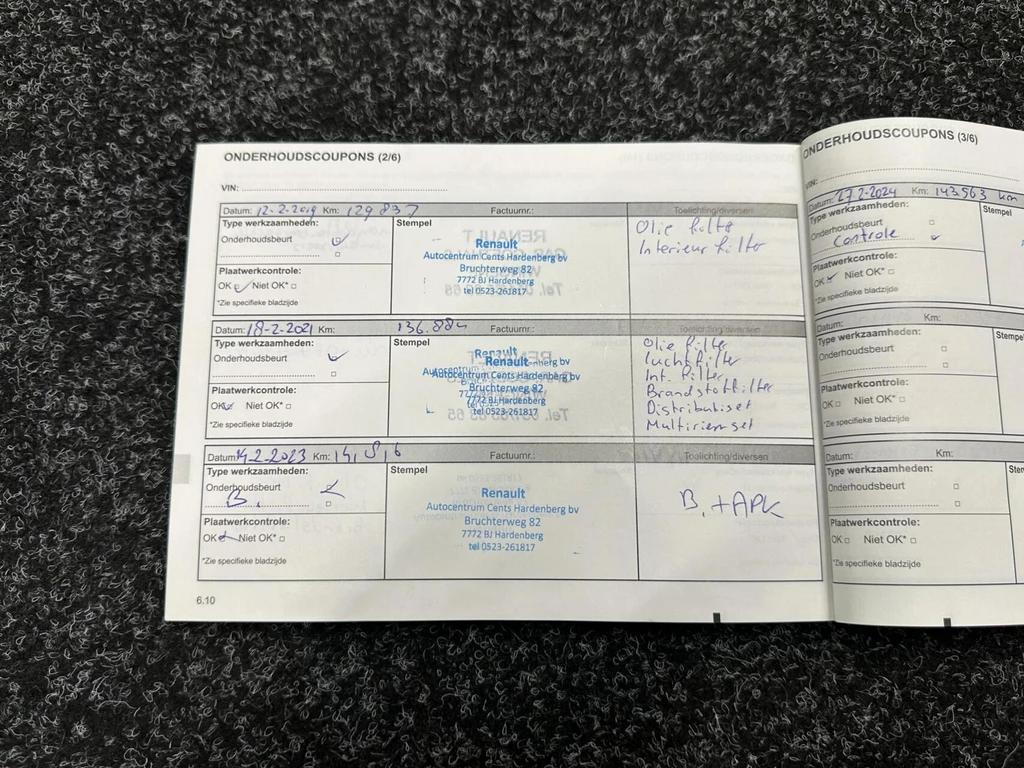 ONDERHOUDSCOUPONS (2/6)
VIN:
Datum: 12-2-2019 Km: 129 837 Factuurnr.: Toelichting/diversen
Type werkzaamheden:
Onderhoudsbeurt
Plaatwerkcontrole:
OK Niet OK*
*Zie specifieke bladzijde
Stempel
Renault
Autocentrum Cents Hardenberg bv
Bruchterweg 82
7772 BJ Hardenberg
tel 0523-261817
Olie filter
Interieur filter
Datum: 18-2-2021 Km: 136.884 Factuurnr.: Toelichting/diversen
Type werkzaamheden:
Onderhoudsbeurt
Plaatwerkcontrole:
OK Niet OK*
*Zie specifieke bladzijde
Stempel
Renault
Autocentrum Cents Hardenberg bv
Bruchterweg 82
7772 BJ Hardenberg
tel 0523-261817
Olie filter
luchtfilter
Int. filter
Brandstoffilter
Distributieset
Multiriem set
Datum: 14-2-2023 Km: Factuurnr.: Toelichting/diversen
Type werkzaamheden:
Onderhoudsbeurt
B.
Plaatwerkcontrole:
OK Niet OK*
*Zie specifieke bladzijde
Stempel
Renault
Autocentrum Cents Hardenberg bv
Bruchterweg 82
7772 BJ Hardenberg
tel 0523-261817
B. + APK
6.10
ONDERHOUDSCOUPONS (3/6)
VIN:
Datum: 27-2-2024 Km: 143.563 km
Type werkzaamheden:
Onderhoudsbeurt
Controle
Plaatwerkcontrole:
OK Niet OK*
*Zie specifieke bladzijde
Stempel
Datum: Km:
Type werkzaamheden:
Onderhoudsbeurt
Plaatwerkcontrole:
OK Niet OK*
*Zie specifieke bladzijde
Datum: Km:
Type werkzaamheden:
Onderhoudsbeurt
Plaatwerkcontrole:
OK Niet OK*
*Zie specifieke bladzijde